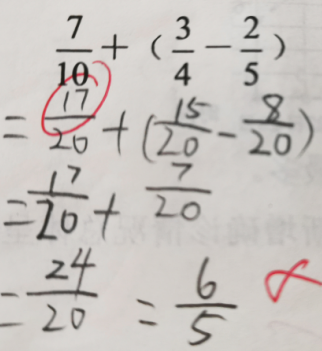 7/10 + (3/4 - 2/5)
= 17/20 + (15/20 - 8/20)
= 17/20 + 7/20
= 24/20 = 6/5